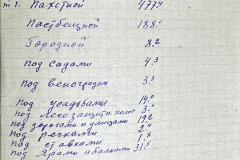 т 1. Пахотной 4774
Пастбищной 188.°
Городной 8.2
под садами 4.3
под виноградом 3.3
под усадьбами 14.°
под лесозащитн поло 3.°
под дорогами и улицами 19.2
под речками 2.
под ставками
под Ярами и балками 31.5